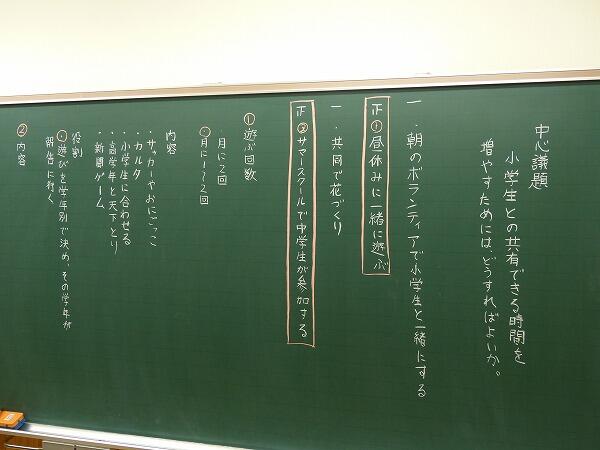 中心議題
小学生との共有できる時間を
増やすためには、どうすればよいか。
一・朝のボランティアで小学生と一緒にする
正①昼休みに一緒に遊ぶ
一・共同で花づくり
正②サマースクールで中学生が参加する
①遊ぶ回数
・月に2回
・月に1~2回
内容
・サッカーやおにごっこ
・カルタ
・小学生に合わせる
・高学年と天下とり
・新聞ゲーム
役割
・遊びを学年別で決め、その学年が
報告に行く
②内容